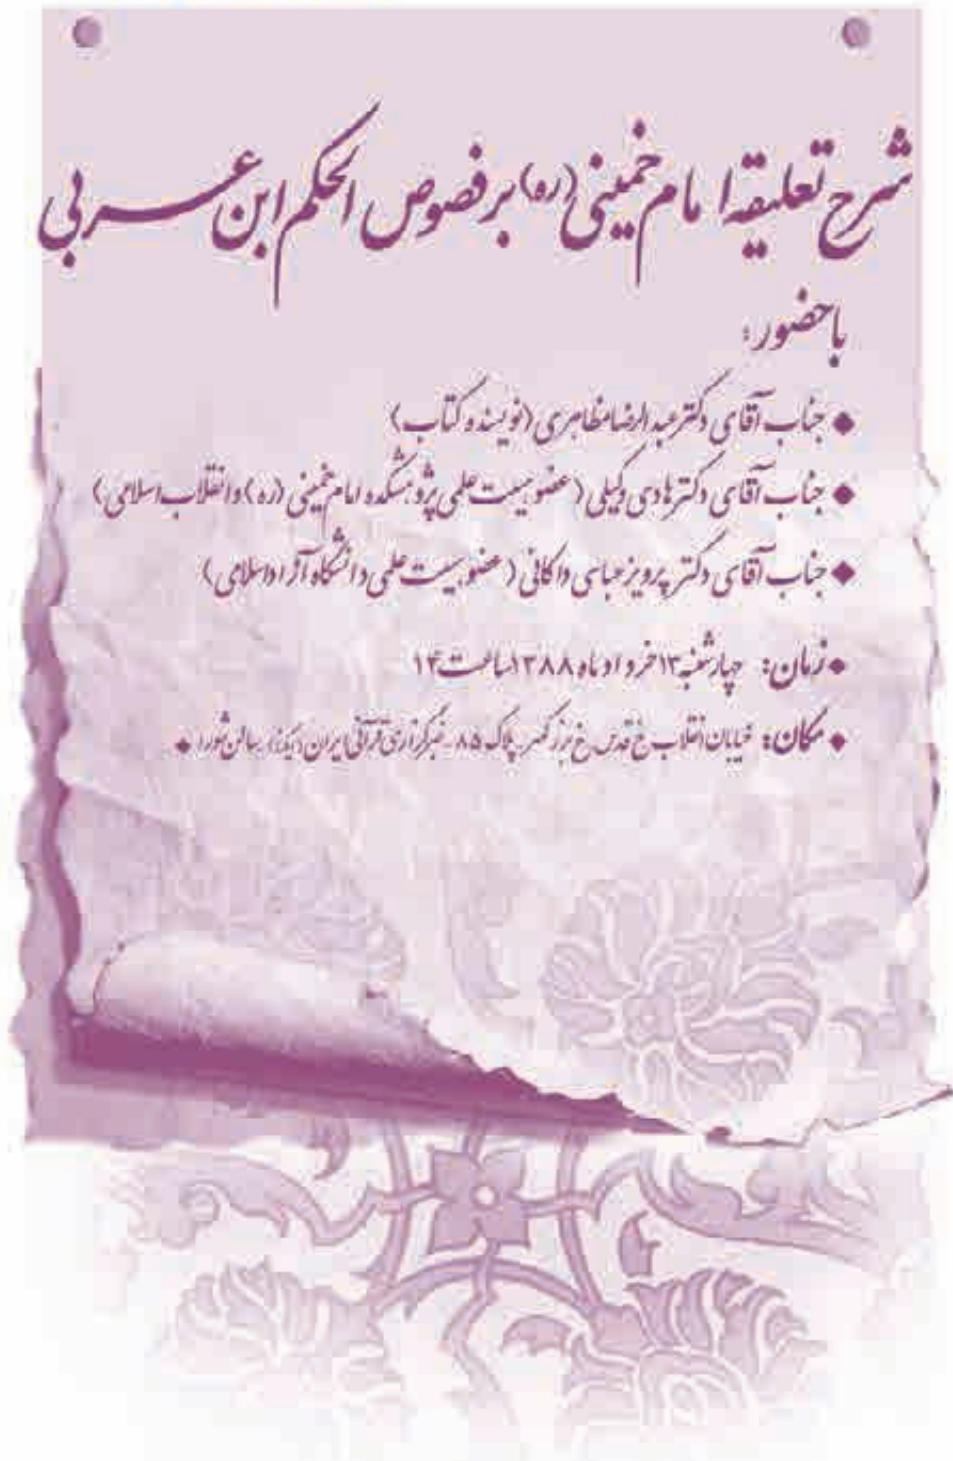 شرح تعلیقه امام خمینی (ره) بر فصوص الحکم ابن عربی
با حضور:
◆ جناب آقای دکتر عبدالرضا مظاهری (نویسنده کتاب)
◆ جناب آقای دکتر هادی وکیلی (عضو هیئت علمی پژوهشکده امام خمینی (ره) و انقلاب اسلامی)
◆ جناب آقای دکتر پرویز عباسی داکانی (عضو هیئت علمی دانشگاه آزاد اسلامی)
◆ زمان: چهارشنبه ۱۳ خرداد ماه ۱۳۸۸ ساعت ۱۴
◆ مکان: خیابان انقلاب خ قدس خ بزرگمهر پلاک ۸۵ - خبرگزاری قرآنی ایران (ایکنا) سالن شورا ◆